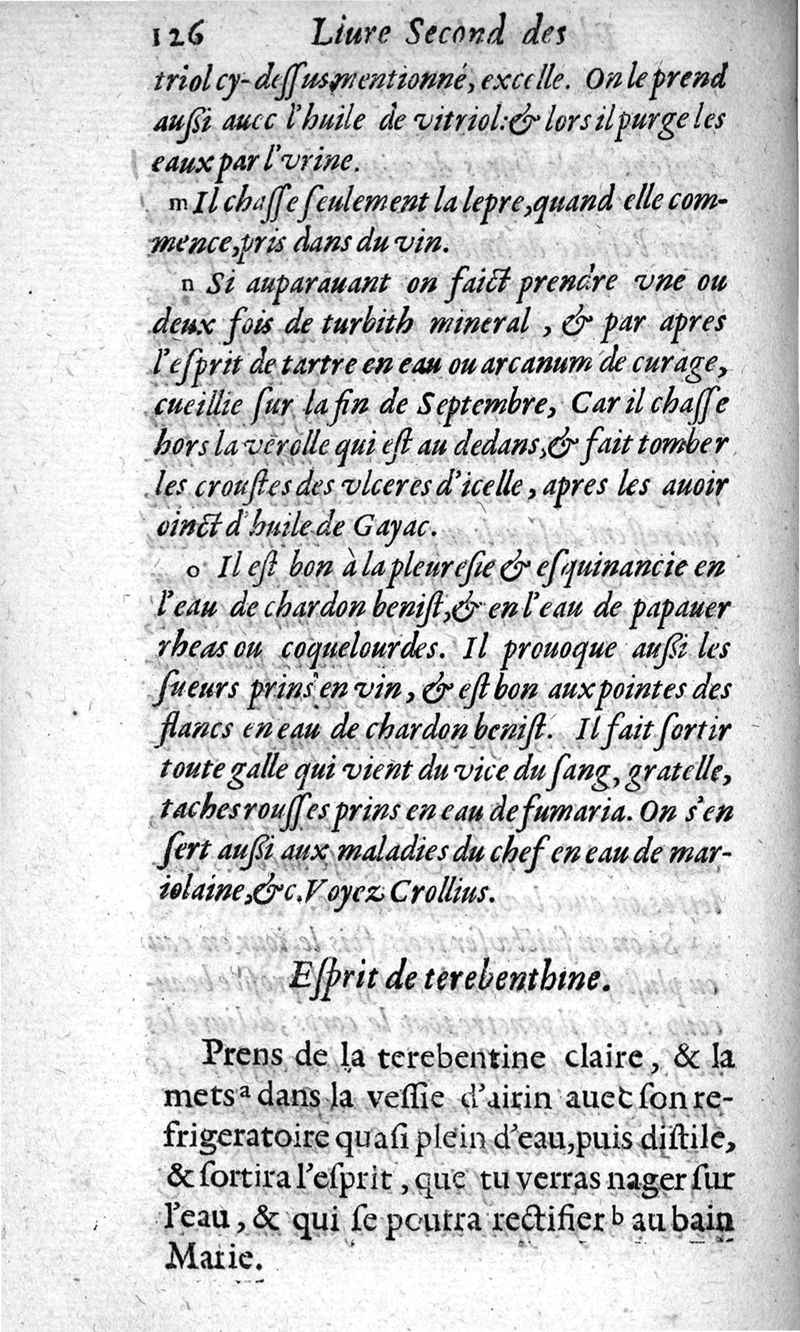 126 Liure Second des
triol cy-dessus mentionné, excelle. On le prend
aussi auec l'huile de vitriol: & lors il purge les
eaux par l'vrine.
m Il chasse seulement la lepre, quand elle com-
mence, pris dans du vin.
n Si auparauant on faict prendre vne ou
deux fois de turbith mineral , & par apres
l'esprit de tartre en eau ou arcanum de curage,
cueillie sur la fin de Septembre, Car il chasse
hors la verolle qui est au dedans, & fait tomber
les croustes des vlceres d'icelle , apres les auoir
oinct d'huile de Gayac.
o Il est bon à la pleuresie & esquinancie en
l'eau de chardon benist, & en l'eau de papauer
rheas ou coquelourdes. Il prouoque aussi les
sueurs prins en vin , & est bon aux pointes des
flancs en eau de chardon benist. Il fait sortir
toute galle qui vient du vice du sang, gratelle,
taches rousses prins en eau de fumaria. On s'en
sert aussi aux maladies du chef en eau de mar-
iolaine, &c. Voyez Crollius.
Esprit de terebenthine.
Prens de la terebentine claire , & la
mets a dans la vessie d'airin auec son re-
frigeratoire quasi plein d'eau, puis distile,
& sortira l'esprit , que tu verras nager sur
l'eau , & qui se pourra rectifier b au bain
Marie.